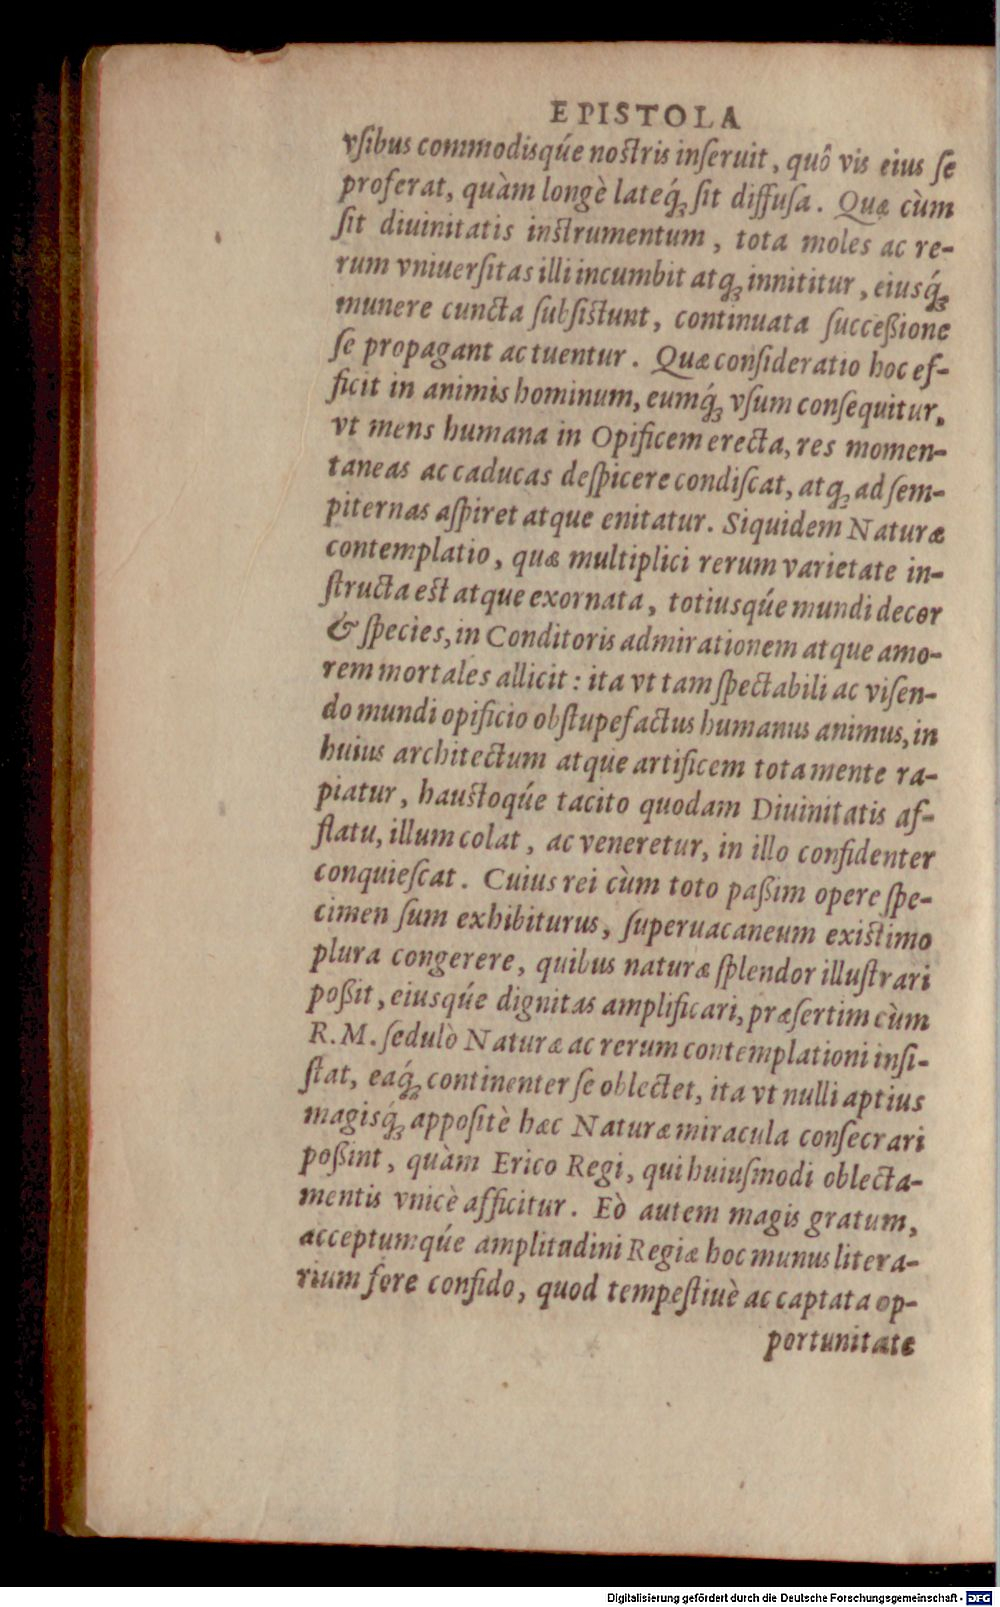 EPISTOLA
vſibus commodisq́ue noſtris inſeruit, quô vis eius ſe
proferat, quàm longè lateq́; ſit diffuſa. Quæ cùm
ſit diuinitatis inſtrumentum, tota moles ac re-
rum vniuerſitas illi incumbit atq; innititur, eiusq́;
munere cuncta ſubſiſtunt, continuata ſucceßione
ſe propagant ac tuentur. Quæ conſideratio hoc ef-
ficit in animis hominum, eumq́; vſum conſequitur,
vt mens humana in Opificem erecta, res momen-
taneas ac caducas deſpicere condiſcat, atq; ad ſem-
piternas aſpiret atque enitatur. Siquidem Naturæ
contemplatio, quæ multiplici rerum varietate in-
ſtructa eſt atque exornata, totiusq́ue mundi decor
& ſpecies, in Conditoris admirationem atque amo-
rem mortales allicit: ita vt tam ſpectabili ac viſen-
do mundi opificio obſtupefactus humanus animus, in
huius architectum atque artificem tota mente ra-
piatur, hauſtoq́ue tacito quodam Diuinitatis af-
flatu, illum colat, ac veneretur, in illo confidenter
conquieſcat. Cuius rei cùm toto paßim opere ſpe-
cimen ſum exhibiturus, ſuperuacaneum exiſtimo
plura congerere, quibus naturæ ſplendor illuſtrari
poßit, eiusq́ue dignitas amplificari, præſertim cùm
R. M. ſedulò Naturæ ac rerum contemplationi inſi-
ſtat, eaq́; continenter ſe oblectet, ita vt nulli aptius
magisq́; appoſitè hæc Naturæ miracula conſecrari
poßint, quàm Erico Regi, qui huiuſmodi oblecta-
mentis vnicè afficitur. Eò autem magis gratum,
acceptumq́ue amplitudini Regiæ hoc munus litera-
rium fore confido, quod tempeſtiuè ac captata op-
portunitate
Digitalisierung gefördert durch die Deutsche Forschungsgemeinschaft - DFG